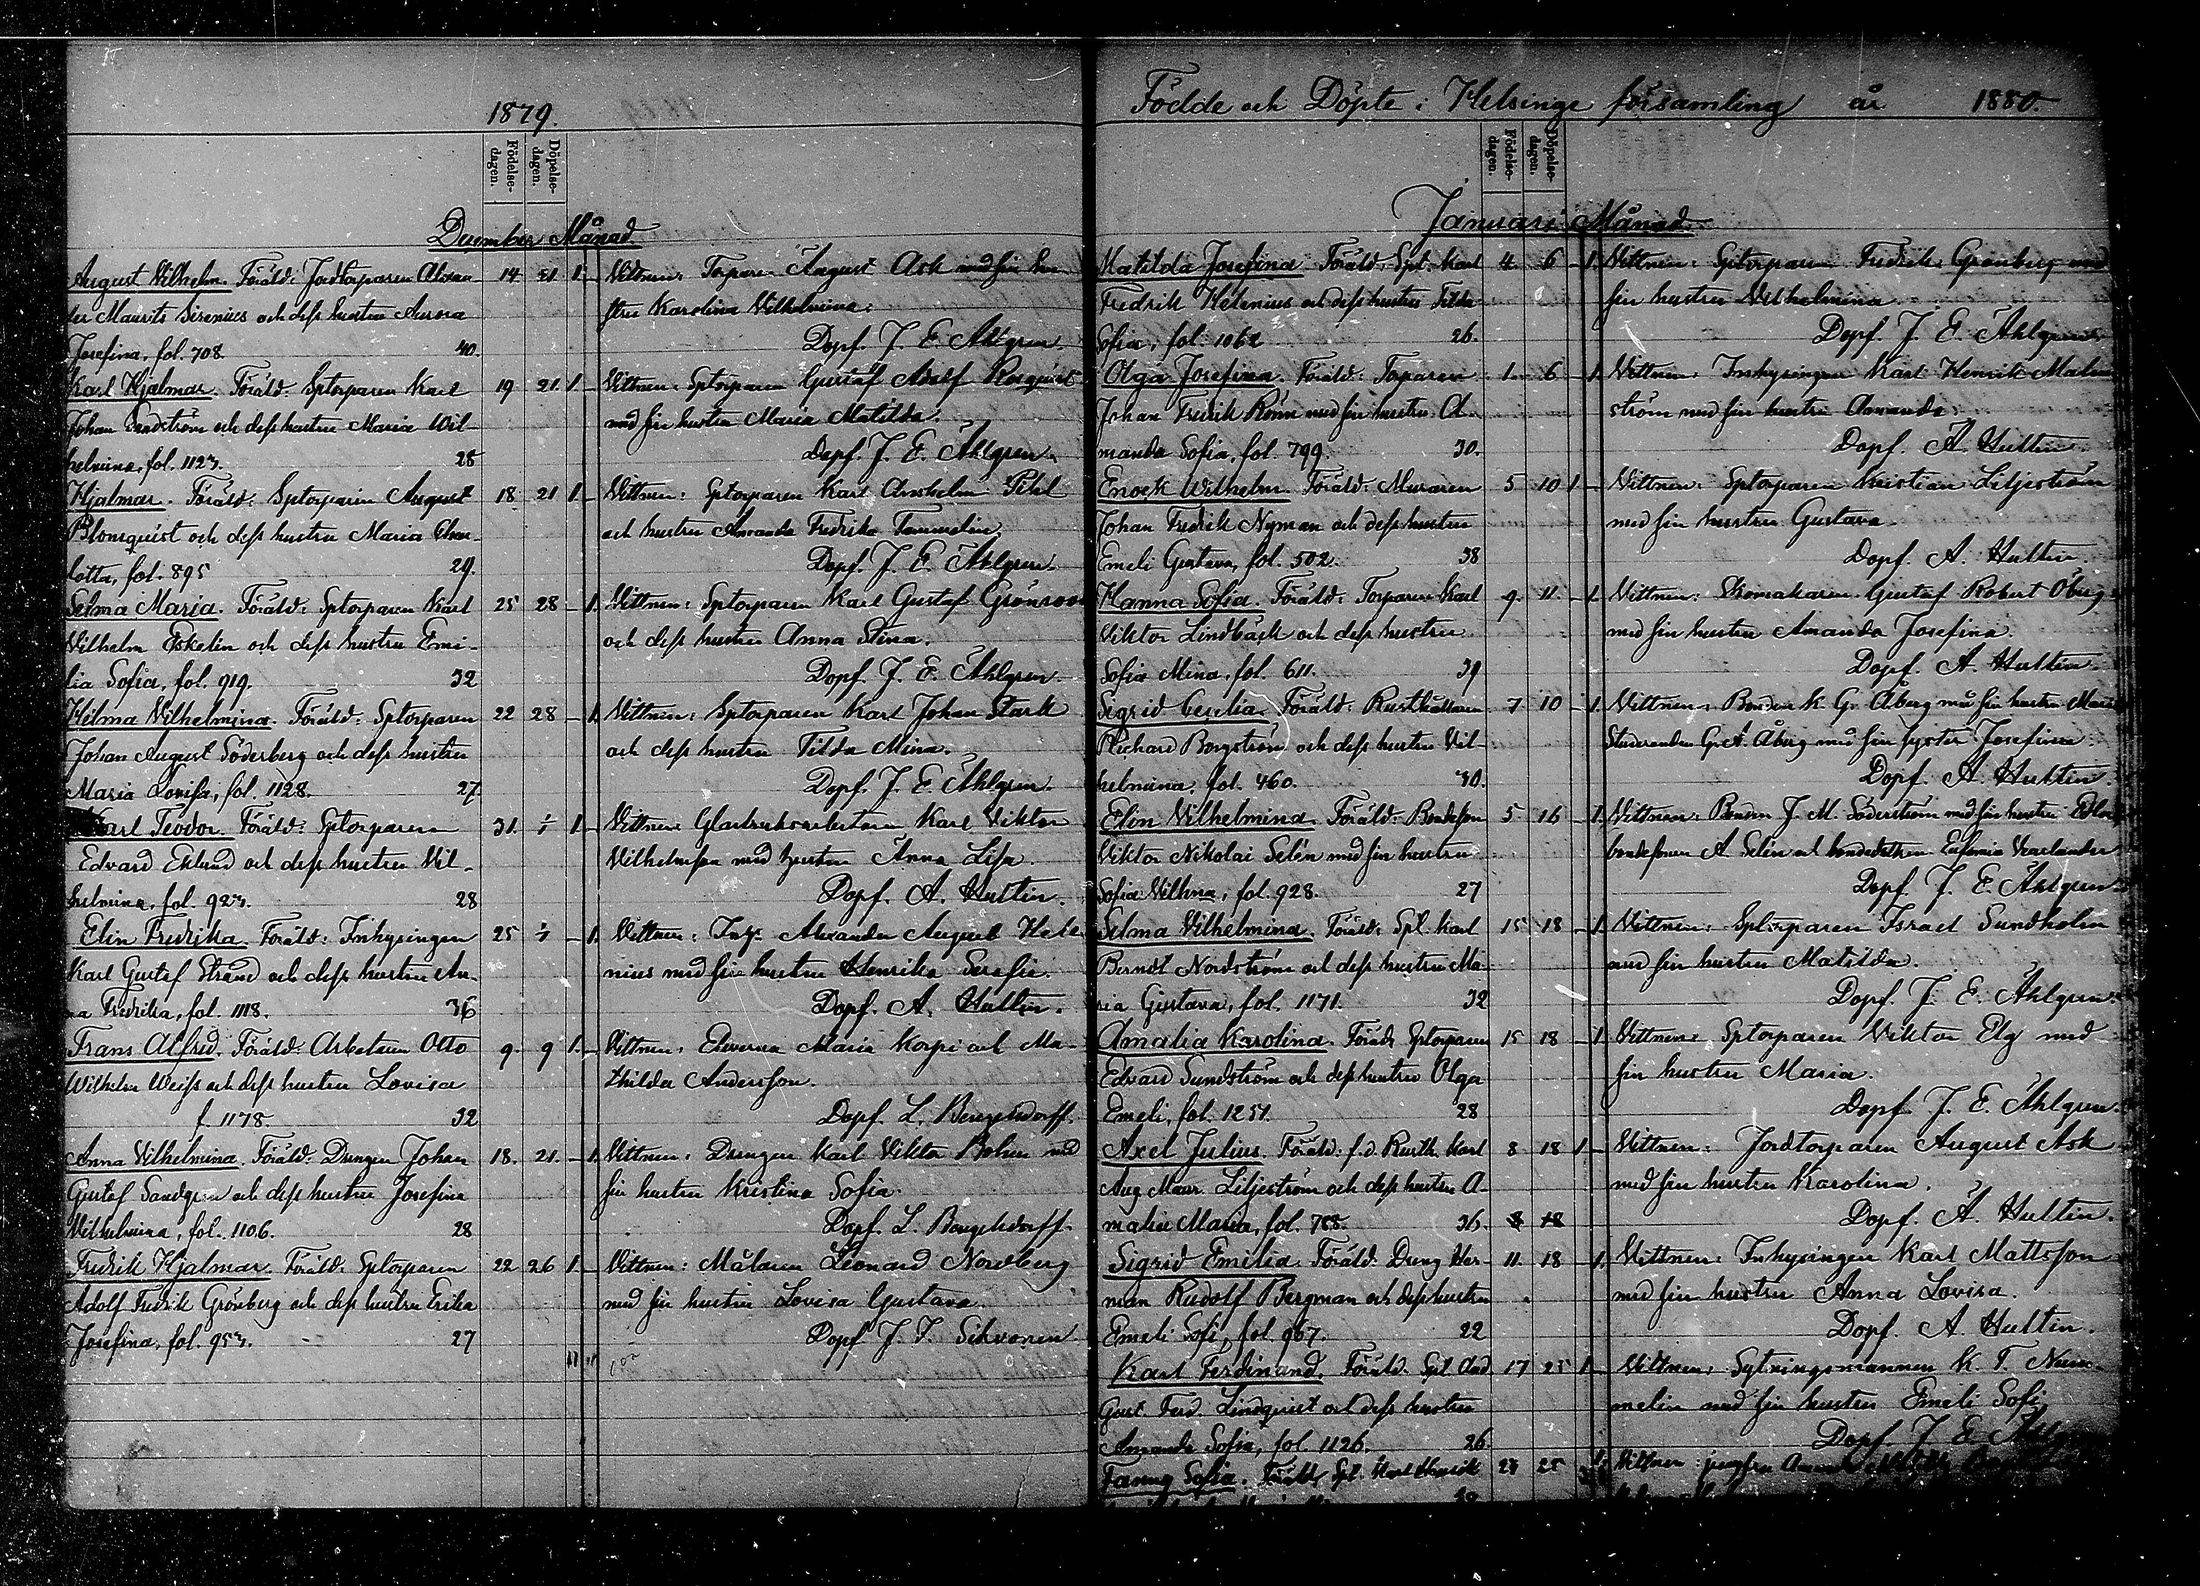 1879.
Födelse-dagen.
Döpelse-dagen.
December Månad
August Vilhelm. Föräld: Jordtorparen Alexan- 14 21 1 - Vittnen: Torparen August Ask med sin hu-
der Maurits Sirenius och dess hustru Aurora stru Karolina Vilhelmina.
Josefina, fol. 708. 40. Döpf. J. E. Ahlgren.
Karl Hjalmar. Föräld: Sptorparen Karl 19 21. 1 - Vittnen: Sptorparen Gustaf Adolf Rosqvist
Johan Sandström och dess hustru Maria Wil- med sin hustru Maria Matilda.
helmina, fol. 1123. 28 Döpf. J. E. Ahlgren.
Hjalmar. Föräld: Sptorparen August 18 21 1 - Vittnen: Sptorparen Karl Anshelm
Blomquist och dess hustru Maria Char- och hustru Amanda Fredrika
lotta, fol. 895 29. Döpf. J. E. Ahlgren.
Selma Maria. Föräld: Sptorparen Karl 25 28 - 1. Vittnen: Sptorparen Karl Gustaf Grönroos
Vilhelm Eskelin och dess hustru Emi- och dess hustru Anna Stina.
lia Sofia, fol. 919. 32 Döpf. J. E. Ahlgren.
Hilma Vilhelmina. Föräld: Sptorparen 22 28 - 1. Vittnen: Sptorparen Karl Johan Stark
Johan August Söderberg och dess hustru och dess hustru Tilda Mina.
Maria Lovisa, fol. 1128. 27 Döpf. J. E. Ahlgren
Karl Teodor. Föräld: Sptorparen 31. 1 - Vittnen: Glasbruksarbetaren Karl Viktor
Edvard Eklund och dess hustru Vil- Vilhelmsson med hustru Anna Lisa.
helmina, fol. 923. 28 Döpf. A. Hultin.
Elin Fredrika. Föräld: Inhysingen 25 - 1. Vittnen: Inhys. Alexander August Hele-
Karl Gustaf Strand och dess hustru An- nius med sin hustru Henrika Serafia.
na Fredrika, fol. 1118. 36 Döpf. A. Hultin.
Frans Alfred. Föräld: Arbetaren Otto 9. 9 1. - Vittnen: Eleverna Maria Korpi och Ma-
Wilhelm Weiss och dess hustru Lovisa thilda Andersson.
f. 1178. 32 Döpf. L. Bengelsdorff.
Anna Vilhelmina. Föräld: Drengen Johan 18. 21. - 1. Vittnen: Drengen Karl Viktor Bohm med
Gustaf Sandgren och dess hustru Josefina sin hustru Kristina Sofia.
Vilhelmina, fol. 1106. 28 Döpf. L. Bengelsdorff.
Fredrik Hjalmar. Föräld: Sptorparen 22 26 1. - Vittnen: Målaren Leonard Nordberg
Adolf Fredrik Grönberg och dess hustru Erika med sin hustru Lovisa Gustava.
Josefina, fol. 953. 27 Döpf J. F. Sihvonen
Födde och Döpte i Helsinge församling år 1880.
Födelse-dagen.
Döpelse-dagen.
Januari Månad.
Matilda Josefina. Föräld: Spt. Karl 4. 6 - 1. Vittnen: Sptorparen Fredrik Grönberg med
Fredrik Helenius och dess hustru Tilda sin hustru Vilhelmina.
Sofia, fol. 1062 26. Döpf. J. E. Ahlgren.
Olga Josefina. Föräld: Torparen 1. 6 - 1. Vittnen: Inhysingen Karl Henrik Malm-
Johan Fredrik Rönn med sin hustru A- ström med sin hustru Amanda.
manda Sofia, fol. 799. 30. Döpf. A. Hultin.
Enock Wilhelm. Föräld: Muraren 5 10 1 - Vittnen: Sptorparen Kristian Liljeström
Johan Fredrik Nyman och dess hustru med sin hustru Gustava.
Emeli Gustava, fol. 502. 38 Döpf. A. Hultin
Hanna Sofia. Föräld: Torparen Karl 9. 11 - 1. Vittnen: Skomakaren Gustaf Robert Öberg
Viktor Lindbäck och dess hustru med sin hustru Amanda Josefina.
Sofia Mina, fol. 611. 39 Döpf. A. Hultin.
Sigrid Cecilia. Föräld: Rusthållaren 7 10 - 1. Vittnen: Bonden K. G. Åberg med sin hustru Maria
Richard Borgström och dess hustru Vil- Studeranden G. A. Åberg med sin syster Josefina.
helmina, fol. 460. 30. Döpf. A. Hultin.
Elin Vilhelmina. Föräld: Bondeson 5 16 - 1. Vittnen: Bonden J. M. Söderström med sin hustru
Viktor Nikolai Selén med sin hustru bondesonen A. Selin och bondedottren Eufemia
Sofia Vilhma, fol. 928. 27 Döpf. J. E. Ahlgren.
Selma Vilhelmina. Föräld: Spt. Karl 15 18 - 1. Vittnen: Sptorparen Israel Sundholm
Berndt Nordström och dess hustru Ma- med sin hustru Matilda.
ria Gustava, fol. 1171. 32 Döpf. J. E. Ahlgren.
Amalia Karolina. Föräld: Sptorparen 15 18 - 1. Vittnen: Sptorparen Viktor Elg med
Edvard Sundström och dess hustru Olga sin hustru Maria.
Emeli, fol. 1251. 28 Döpf. J. E. Ahlgren.
Axel Julius. Föräld: f.d. Rusth. Karl 8 18 1 - Vittnen: Jordtorparen August Ask
Aug. Maur. Liljeström och dess hustru A- med sin hustru Karolina.
malia Maria, fol. 788. 36. 8 18 Döpf. A. Hultin.
Sigrid Emilia. Föräld: Dreng Her- 11. 18 - 1. Vittnen: Inhysingen Karl Mattsson
man Rudolf Bergman och dess hustru med sin hustru Anna Lovisa.
Emeli Sofi, fol. 967. 22 Döpf. A. Hultin.
Karl Ferdinand. Föräld: Spt. 17 25 1 - Vittnen: Sytningsmannen K. F. Num-
Gust. Ferd. Lindquist och dess hustru melin med sin hustru Emeli Sofi
Amanda Sofia, fol. 1126. 26. Döpf. J. E. Ahlgren
Fanny Sofia. Föräld: Spt. Karl Henrik 23 25 Vittnen: jungfru